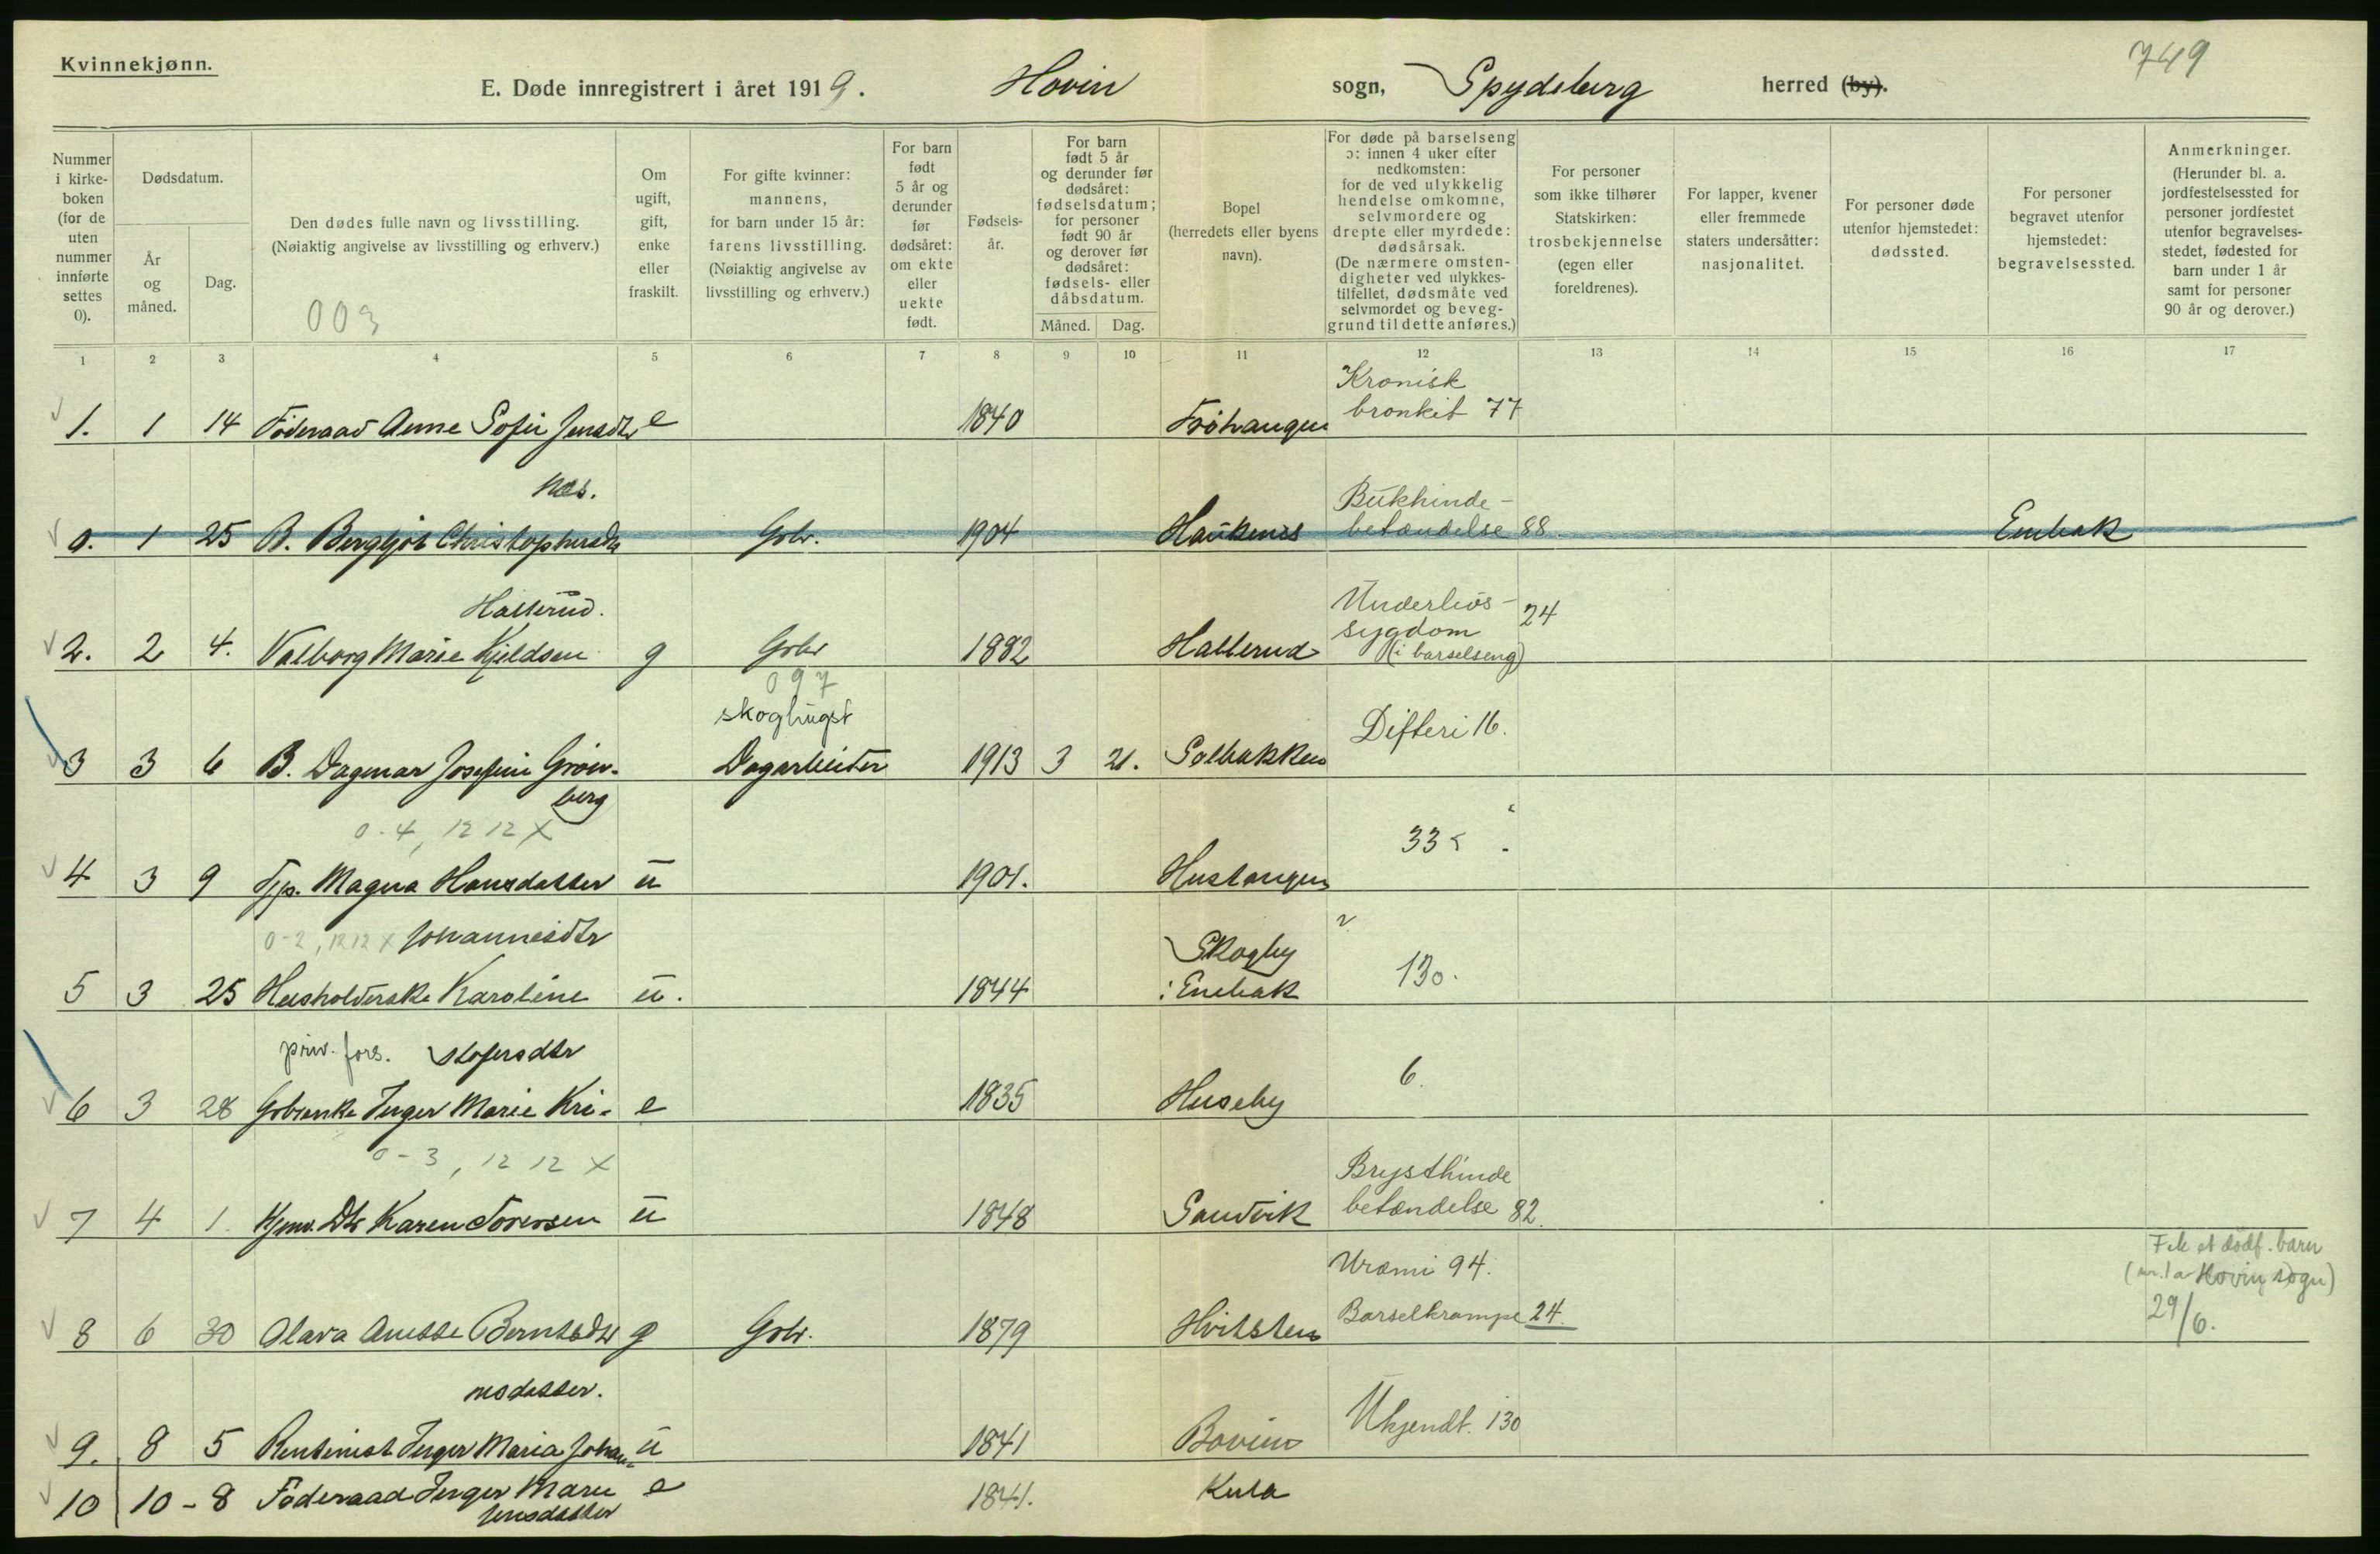 749
Kvinnekjønn.
E. Døde innregistrert i året 1919. Hovin sogn, Spydeberg herred (by).
Nummer i kirke- boken (for de uten nummer innførte settes 0).
Dødsdatum.
År og måned.
Dag.
Den dødes fulle navn og livsstilling.
(Nøiaktig angivelse av livsstilling og erhverv.)
003
Om ugift, gift, enke eller fraskilt.
For gifte kvinner: mannens, for barn under 15 år: farens livsstilling. (Nøiaktig angivelse av livsstilling og erhverv.)
For barn født 5 år og derunder før dødsåret: om ekte eller uekte født.
Fødsels- år.
For barn født 5 år og derunder før dødsåret: fødselsdatum; for personer født 90 år og derover før dødsåret: fødsels- eller dåbsdatum.
Måned. Dag.
Bopel (herredets eller byens navn).
For døde på barselseng ɔ: innen 4 uker efter nedkomsten: for de ved ulykkelig hendelse omkomne, selvmordere og drepte eller myrdede: dødsårsak. (De nærmere omsten- digheter ved ulykkes- tilfellet, dødsmåte ved selvmordet og beveg- grund til dette anføres.)
For personer som ikke tilhører Statskirken: trosbekjennelse (egen eller foreldrenes).
For lapper, kvener eller fremmede staters undersåtter: nasjonalitet.
For personer døde utenfor hjemstedet: dødssted.
For personer begravet utenfor hjemstedet: begravelsessted.
Anmerkninger. (Herunder bl. a. jordfestelsessted for personer jordfestet utenfor begravelses- stedet, fødested for barn under 1 år samt for personer 90 år og derover.)
1 2 3 4 5 6 7 8 9 10 11 12 13 14 15 16 17
Kronisk
bronkit 77
1. 1 14 Föderaad Anne Sofie Jensdtr e 1840 Fröhaugen
næs.
Bukhinde-
0. 1 25 B. Bergljot Christophersdtr Gbr. 1904 Haukenes betændelse 88. Enebak
Hallerud.
Underlivs-
sygdom 24
(i barselseng)
2. 2 4. Valborg Marie Kjeldsen g Gbr 1882 Hallerud
097
skoghugst
Difteri 16.
3 3 6 B. Dagmar Josefine Grön- Dagarbeider 1913 3 21. Solbakken
berg
0-4, 12 12 X
33
4 3 9 Tjp. Magna Hansdatter u 1901. Huslangen
0-2, 12 12 X Johannesdtr
Skogby
130.
5 3 25 Husholderske Karoline u. 1844 i Enebak
priv. fors. stofersdtr
6.
6 3 28 Gbrenke Inger Marie Kri- e 1835 Huseby
0-3, 12 12 X
Brysthinde
betændelse 82.
7 4 1. Karen Torersen u 1848 Sandvik
Uræmi 94.
Barselkrampe 24.
Fik et dødf. barn
(nr. 1 a Hovin sogn)
29/6.
8 6 30 Olava Anette Berntsdtr g Gbr. 1879 Hvitsten
nesdatter.
Ukjendt. 130
9. 8 5 Rentenist Inger Maria Johan- u 1841 Bovim
10 10-8 Föderaad Inger Marie e 1841. Kula
Jensdatter